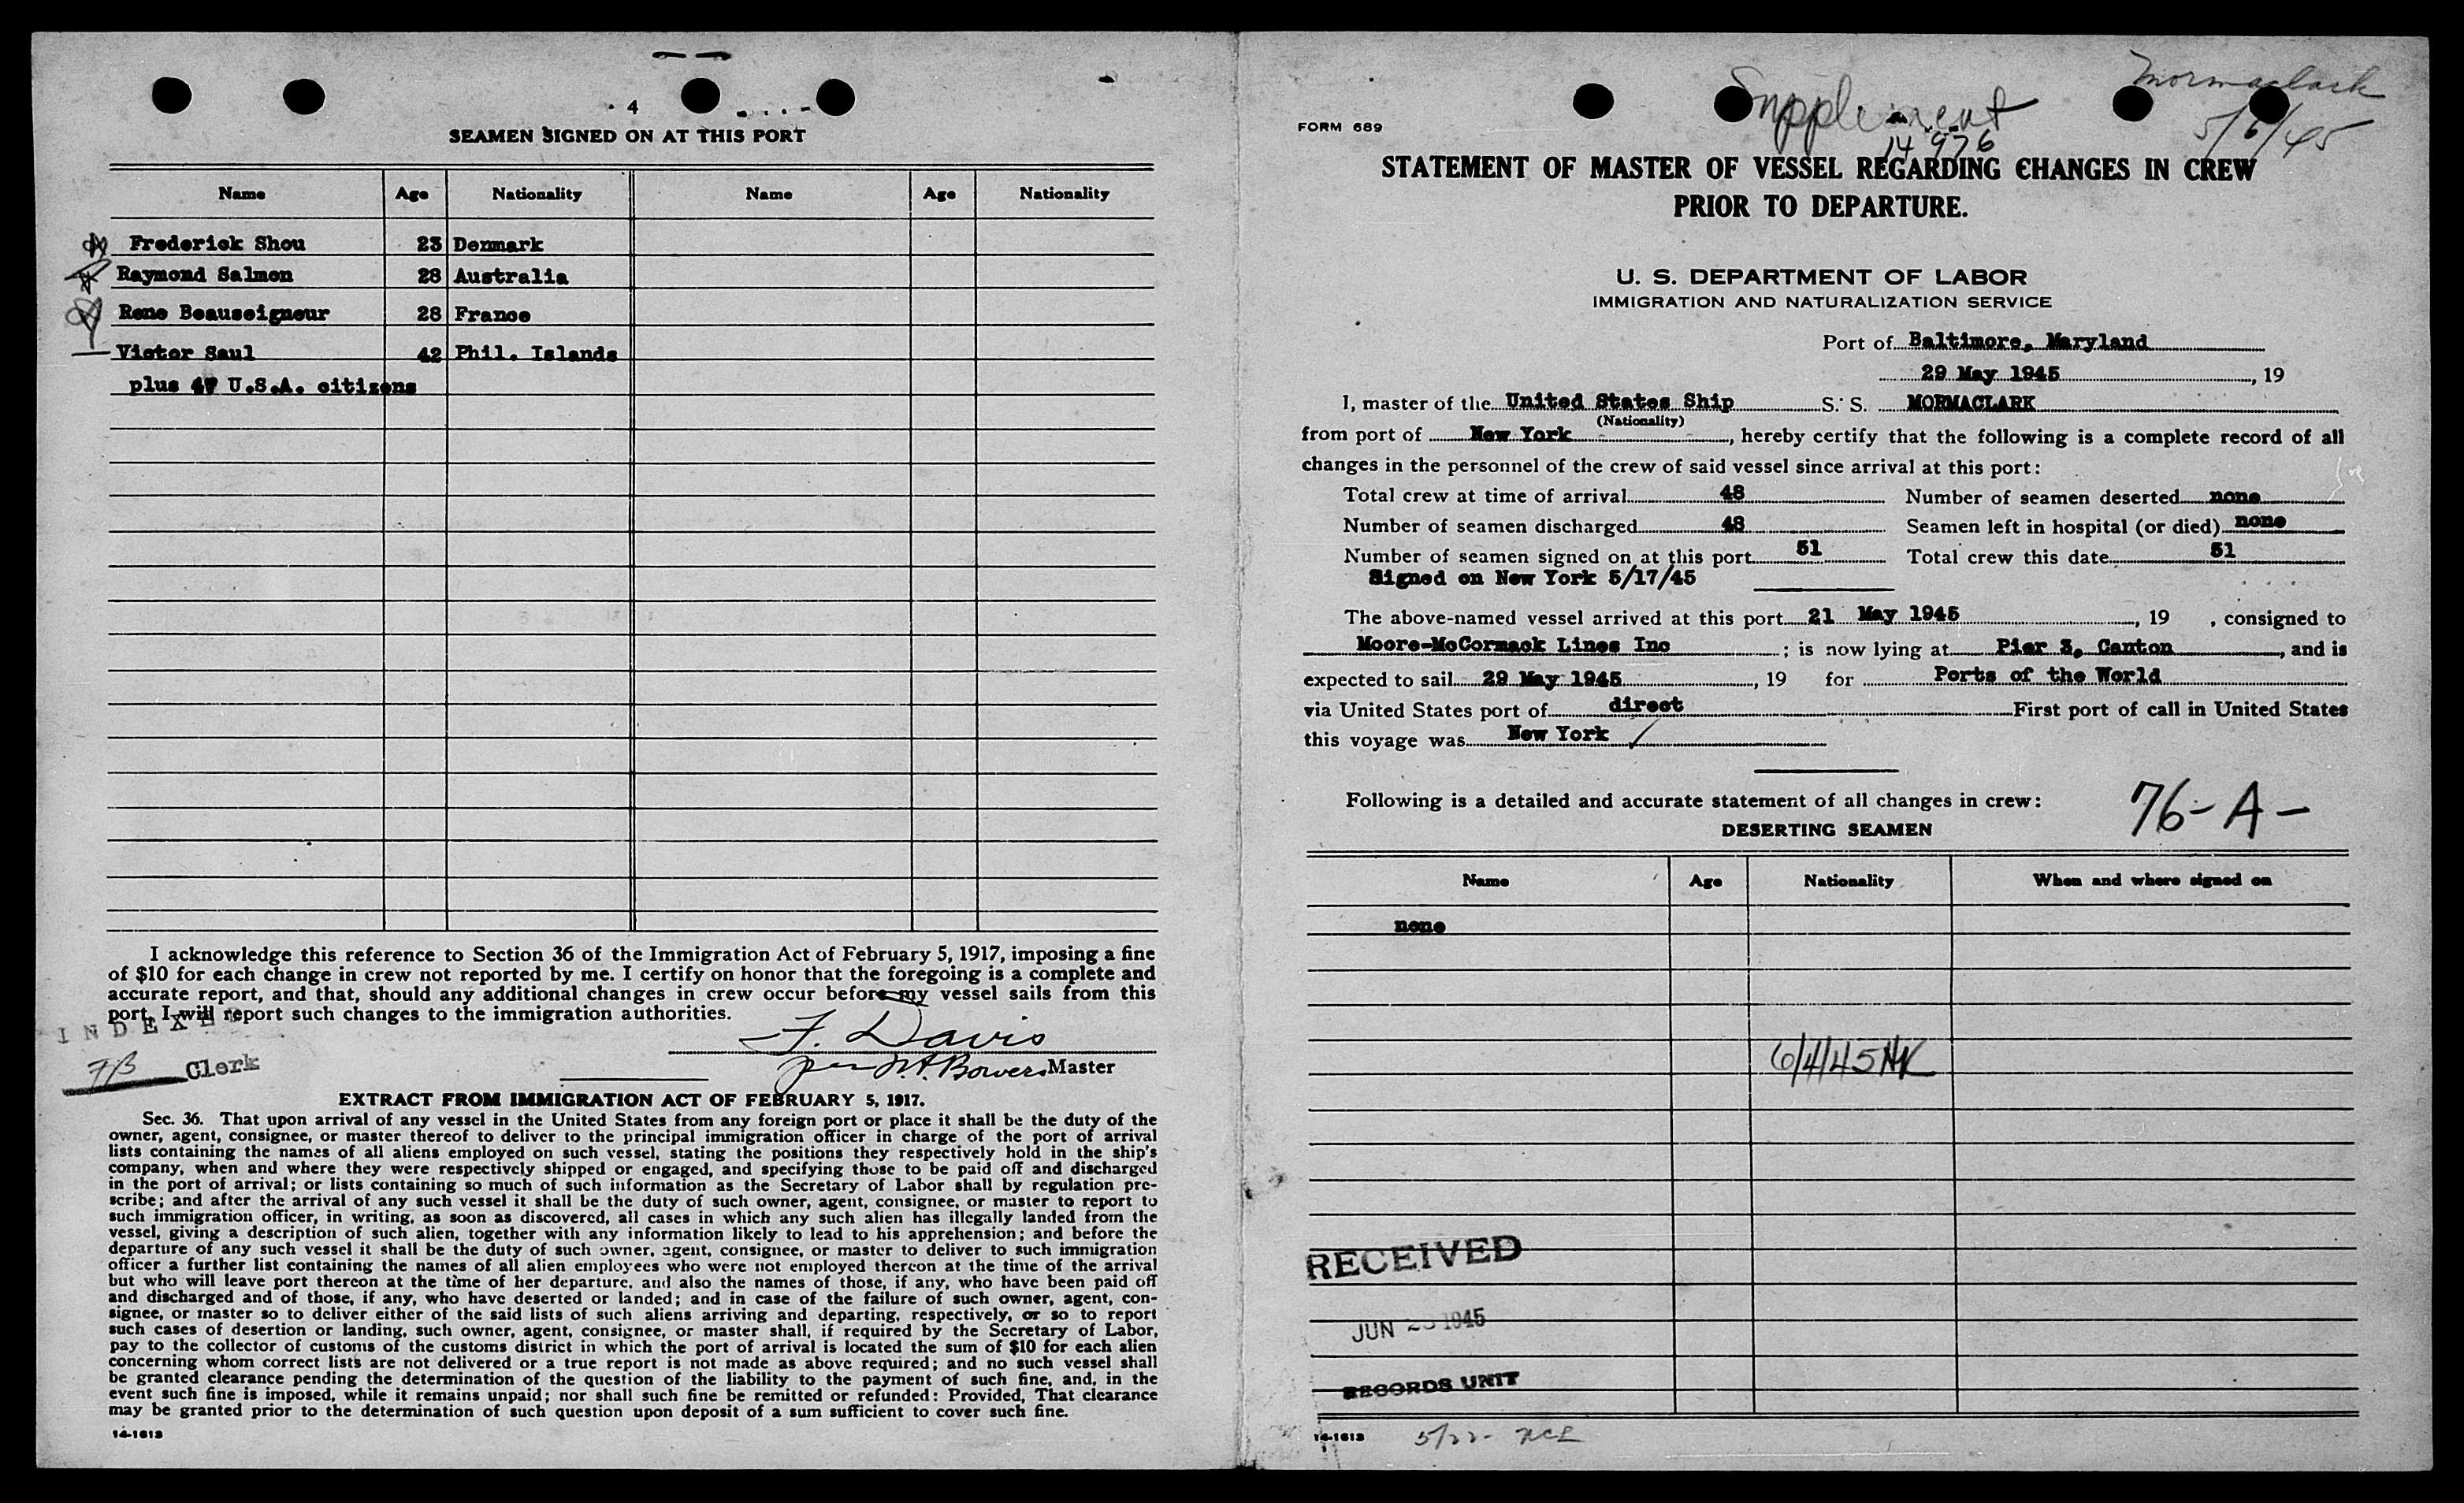 4
SEAMEN SIGNED ON AT THIS PORT
Name Age Nationality Name Age Nationality
Frederick Shou 23 Denmark
Raymond Salmon 28 Australia
Rene Beauseigneur 28 France
Victor Saul 42 Phil. Islands
plus 47 U.S.A. citizens
I acknowledge this reference to Section 36 of the Immigration Act of February 5, 1917, imposing a fine
of $10 for each change in crew not reported by me. I certify on honor that the foregoing is a complete and
accurate report, and that, should any additional changes in crew occur before my vessel sails from this
port, I will report such changes to the immigration authorities.
INDEXED
F. Davis
Clerk
per W.A. Bowers Master
EXTRACT FROM IMMIGRATION ACT OF FEBRUARY 5, 1917.
Sec. 36. That upon arrival of any vessel in the United States from any foreign port or place it shall be the duty of the
owner, agent, consignee, or master thereof to deliver to the principal immigration officer in charge of the port of arrival
lists containing the names of all aliens employed on such vessel, stating the positions they respectively hold in the ship's
company, when and where they were respectively shipped or engaged, and specifying those to be paid off and discharged
in the port of arrival; or lists containing so much of such information as the Secretary of Labor shall by regulation pre-
scribe; and after the arrival of any such vessel it shall be the duty of such owner, agent, consignee, or master to report to
such immigration officer, in writing, as soon as discovered, all cases in which any such alien has illegally landed from the
vessel, giving a description of such alien, together with any information likely to lead to his apprehension; and before the
departure of any such vessel it shall be the duty of such owner, agent, consignee, or master to deliver to such immigration
officer a further list containing the names of all alien employees who were not employed thereon at the time of the arrival
but who will leave port thereon at the time of her departure, and also the names of those, if any, who have been paid off
and discharged and of those, if any, who have deserted or landed; and in case of the failure of such owner, agent, con-
signee, or master so to deliver either of the said lists of such aliens arriving and departing, respectively, or so to report
such cases of desertion or landing, such owner, agent, consignee, or master shall, if required by the Secretary of Labor,
pay to the collector of customs of the customs district in which the port of arrival is located the sum of $10 for each alien
concerning whom correct lists are not delivered or a true report is not made as above required; and no such vessel shall
be granted clearance pending the determination of the question of the liability to the payment of such fine, and, in the
event such fine is imposed, while it remains unpaid; nor shall such fine be remitted or refunded: Provided, That clearance
may be granted prior to the determination of such question upon deposit of a sum sufficient to cover such fine.
14-1613
Mormaclark
Supplement
5/6/45
FORM 689
14976
STATEMENT OF MASTER OF VESSEL REGARDING CHANGES IN CREW
PRIOR TO DEPARTURE.
U. S. DEPARTMENT OF LABOR
IMMIGRATION AND NATURALIZATION SERVICE
Port of Baltimore, Maryland
29 May 1945, 19
I, master of the United States Ship S. S. MORMACLARK
(Nationality)
from port of New York, hereby certify that the following is a complete record of all
changes in the personnel of the crew of said vessel since arrival at this port:
Total crew at time of arrival 48 Number of seamen deserted none
Number of seamen discharged 48 Seamen left in hospital (or died) none
Number of seamen signed on at this port 51 Total crew this date 51
Signed on New York 5/17/45
The above-named vessel arrived at this port 21 May 1945, 19 , consigned to
Moore-McCormack Lines Inc ; is now lying at Pier 3, Canton, and is
expected to sail 29 May 1945, 19 for Ports of the World
via United States port of direct First port of call in United States
this voyage was New York
Following is a detailed and accurate statement of all changes in crew:
76-A-
DESERTING SEAMEN
Name Age Nationality When and where signed on
none
6/4/45
RECEIVED
JUN 1945
RECORDS UNIT
14-1613
5/22-